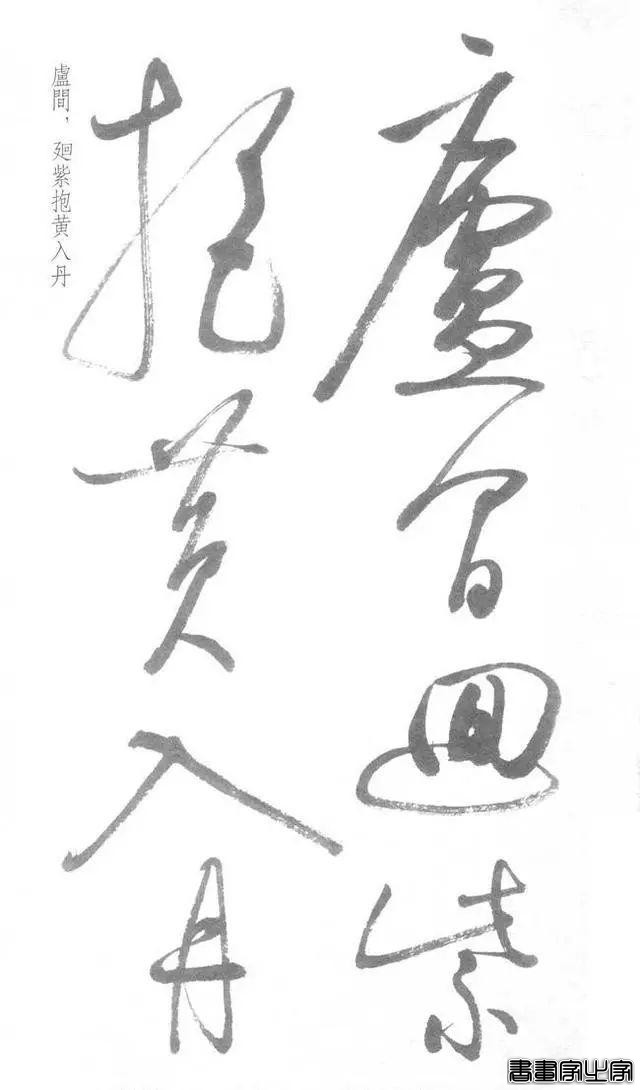 盧間廻紫
抱黄入丹
盧間，廻紫抱黄入丹
書畫家之家